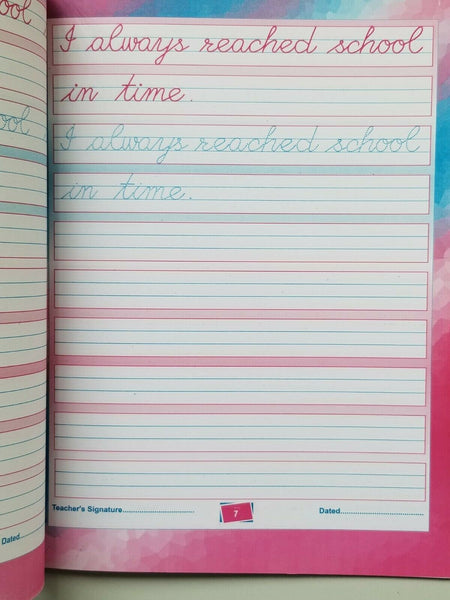 ool
I always reached school
in time.
ool
I always reached school
in time.
Teacher's Signature............................
7
Dated................................
Dated....